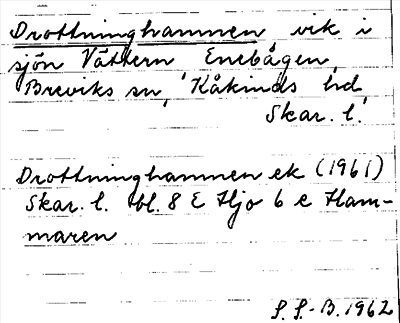 Drottninghamnen vik i
sjön Vättern Enebågen,
Breviks sn, Kåkinds hd,
Skar. l.
Drottninghamnen ek (1961)
Skar. l. bl. 8 E Hjo 6 e Ham-
maren
S. S.-B. 1962